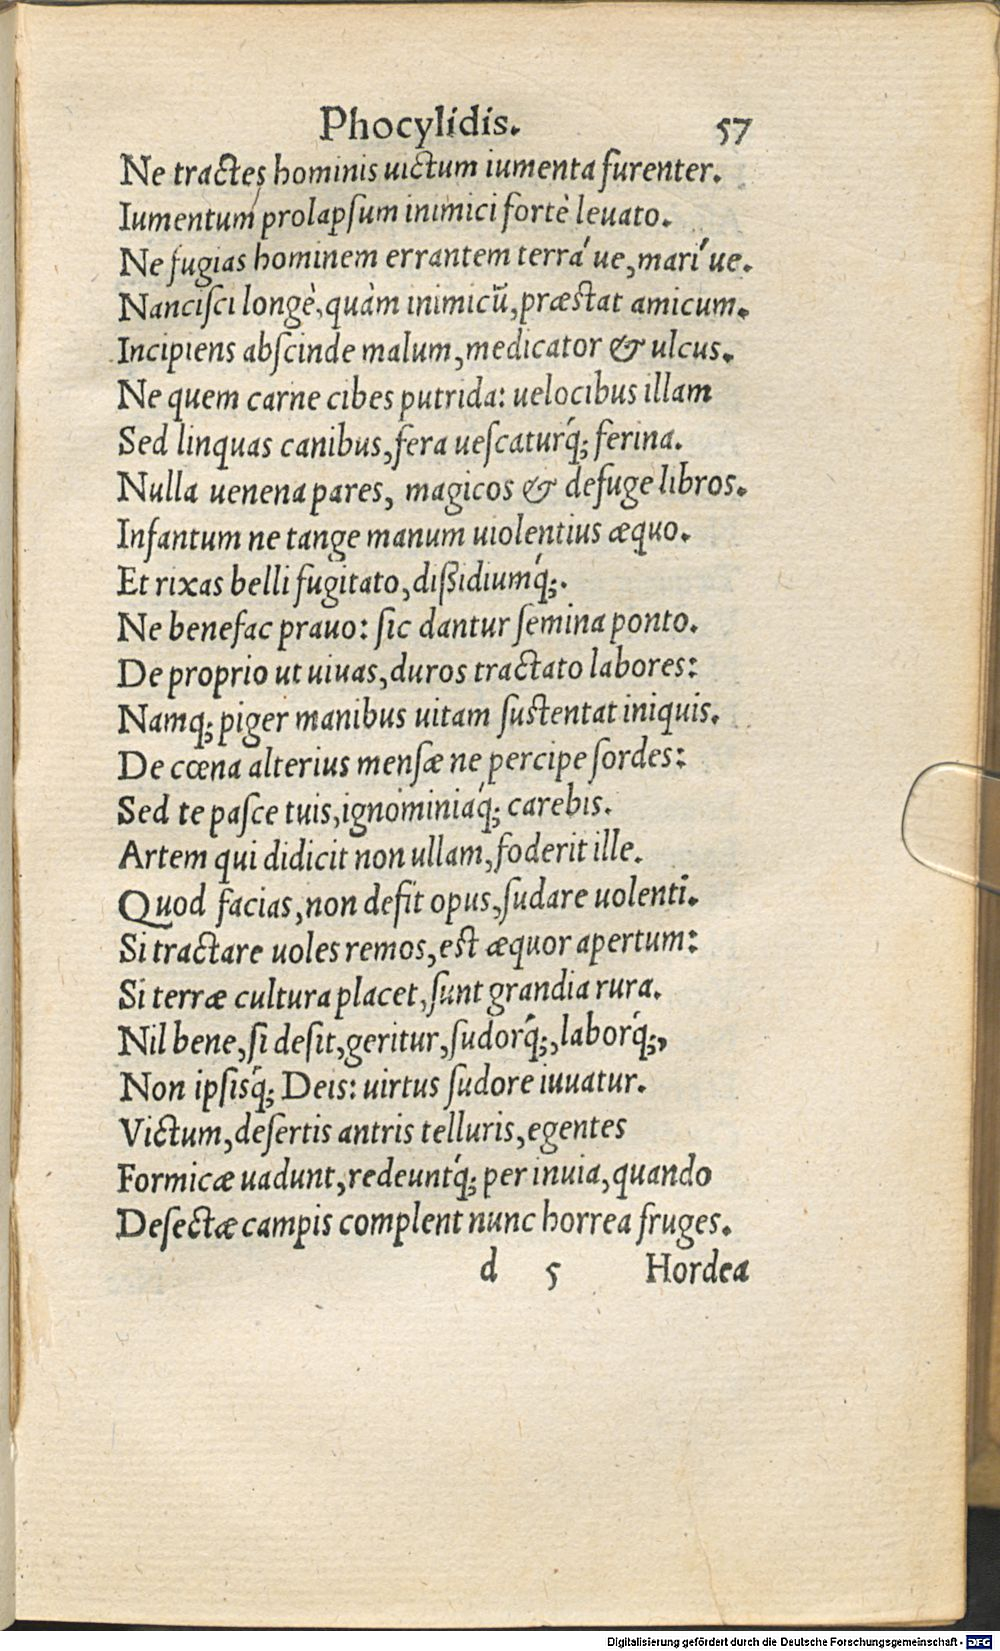 Phocylidis. 57
Ne tractes hominis uictum iumenta furenter.
Iumentum prolapſum inimici fortè leuato.
Ne fugias hominem errantem terrá ue, marí ue.
Nanciſci longè, quàm inimicũ, præſtat amicum.
Incipiens abſcinde malum, medicator & ulcus.
Ne quem carne cibes putrida: uelocibus illam
Sed linquas canibus, fera ueſcaturq́; ferina.
Nulla uenena pares, magicos & defuge libros.
Infantum ne tange manum uiolentius æquo.
Et rixas belli fugitato, dißidiumq́;.
Ne benefac prauo: ſic dantur ſemina ponto.
De proprio ut uiuas, duros tractato labores:
Namq; piger manibus uitam ſuſtentat iniquis.
De cœna alterius menſæ ne percipe ſordes:
Sed te paſce tuis, ignominiaq́; carebis.
Artem qui didicit non ullam, foderit ille.
Quod facias, non defit opus, ſudare uolenti.
Si tractare uoles remos, eſt æquor apertum:
Si terræ cultura placet, ſunt grandia rura.
Nil bene, ſi deſit, geritur, ſudorq́;, laborq́;,
Non ipſisq́; Deis: uirtus ſudore iuuatur.
Victum, deſertis antris telluris, egentes
Formicæ uadunt, redeuntq́; per inuia, quando
Deſectæ campis complent nunc horrea fruges.
d 5 Hordea
Digitalisierung gefördert durch die Deutsche Forschungsgemeinschaft - DFG